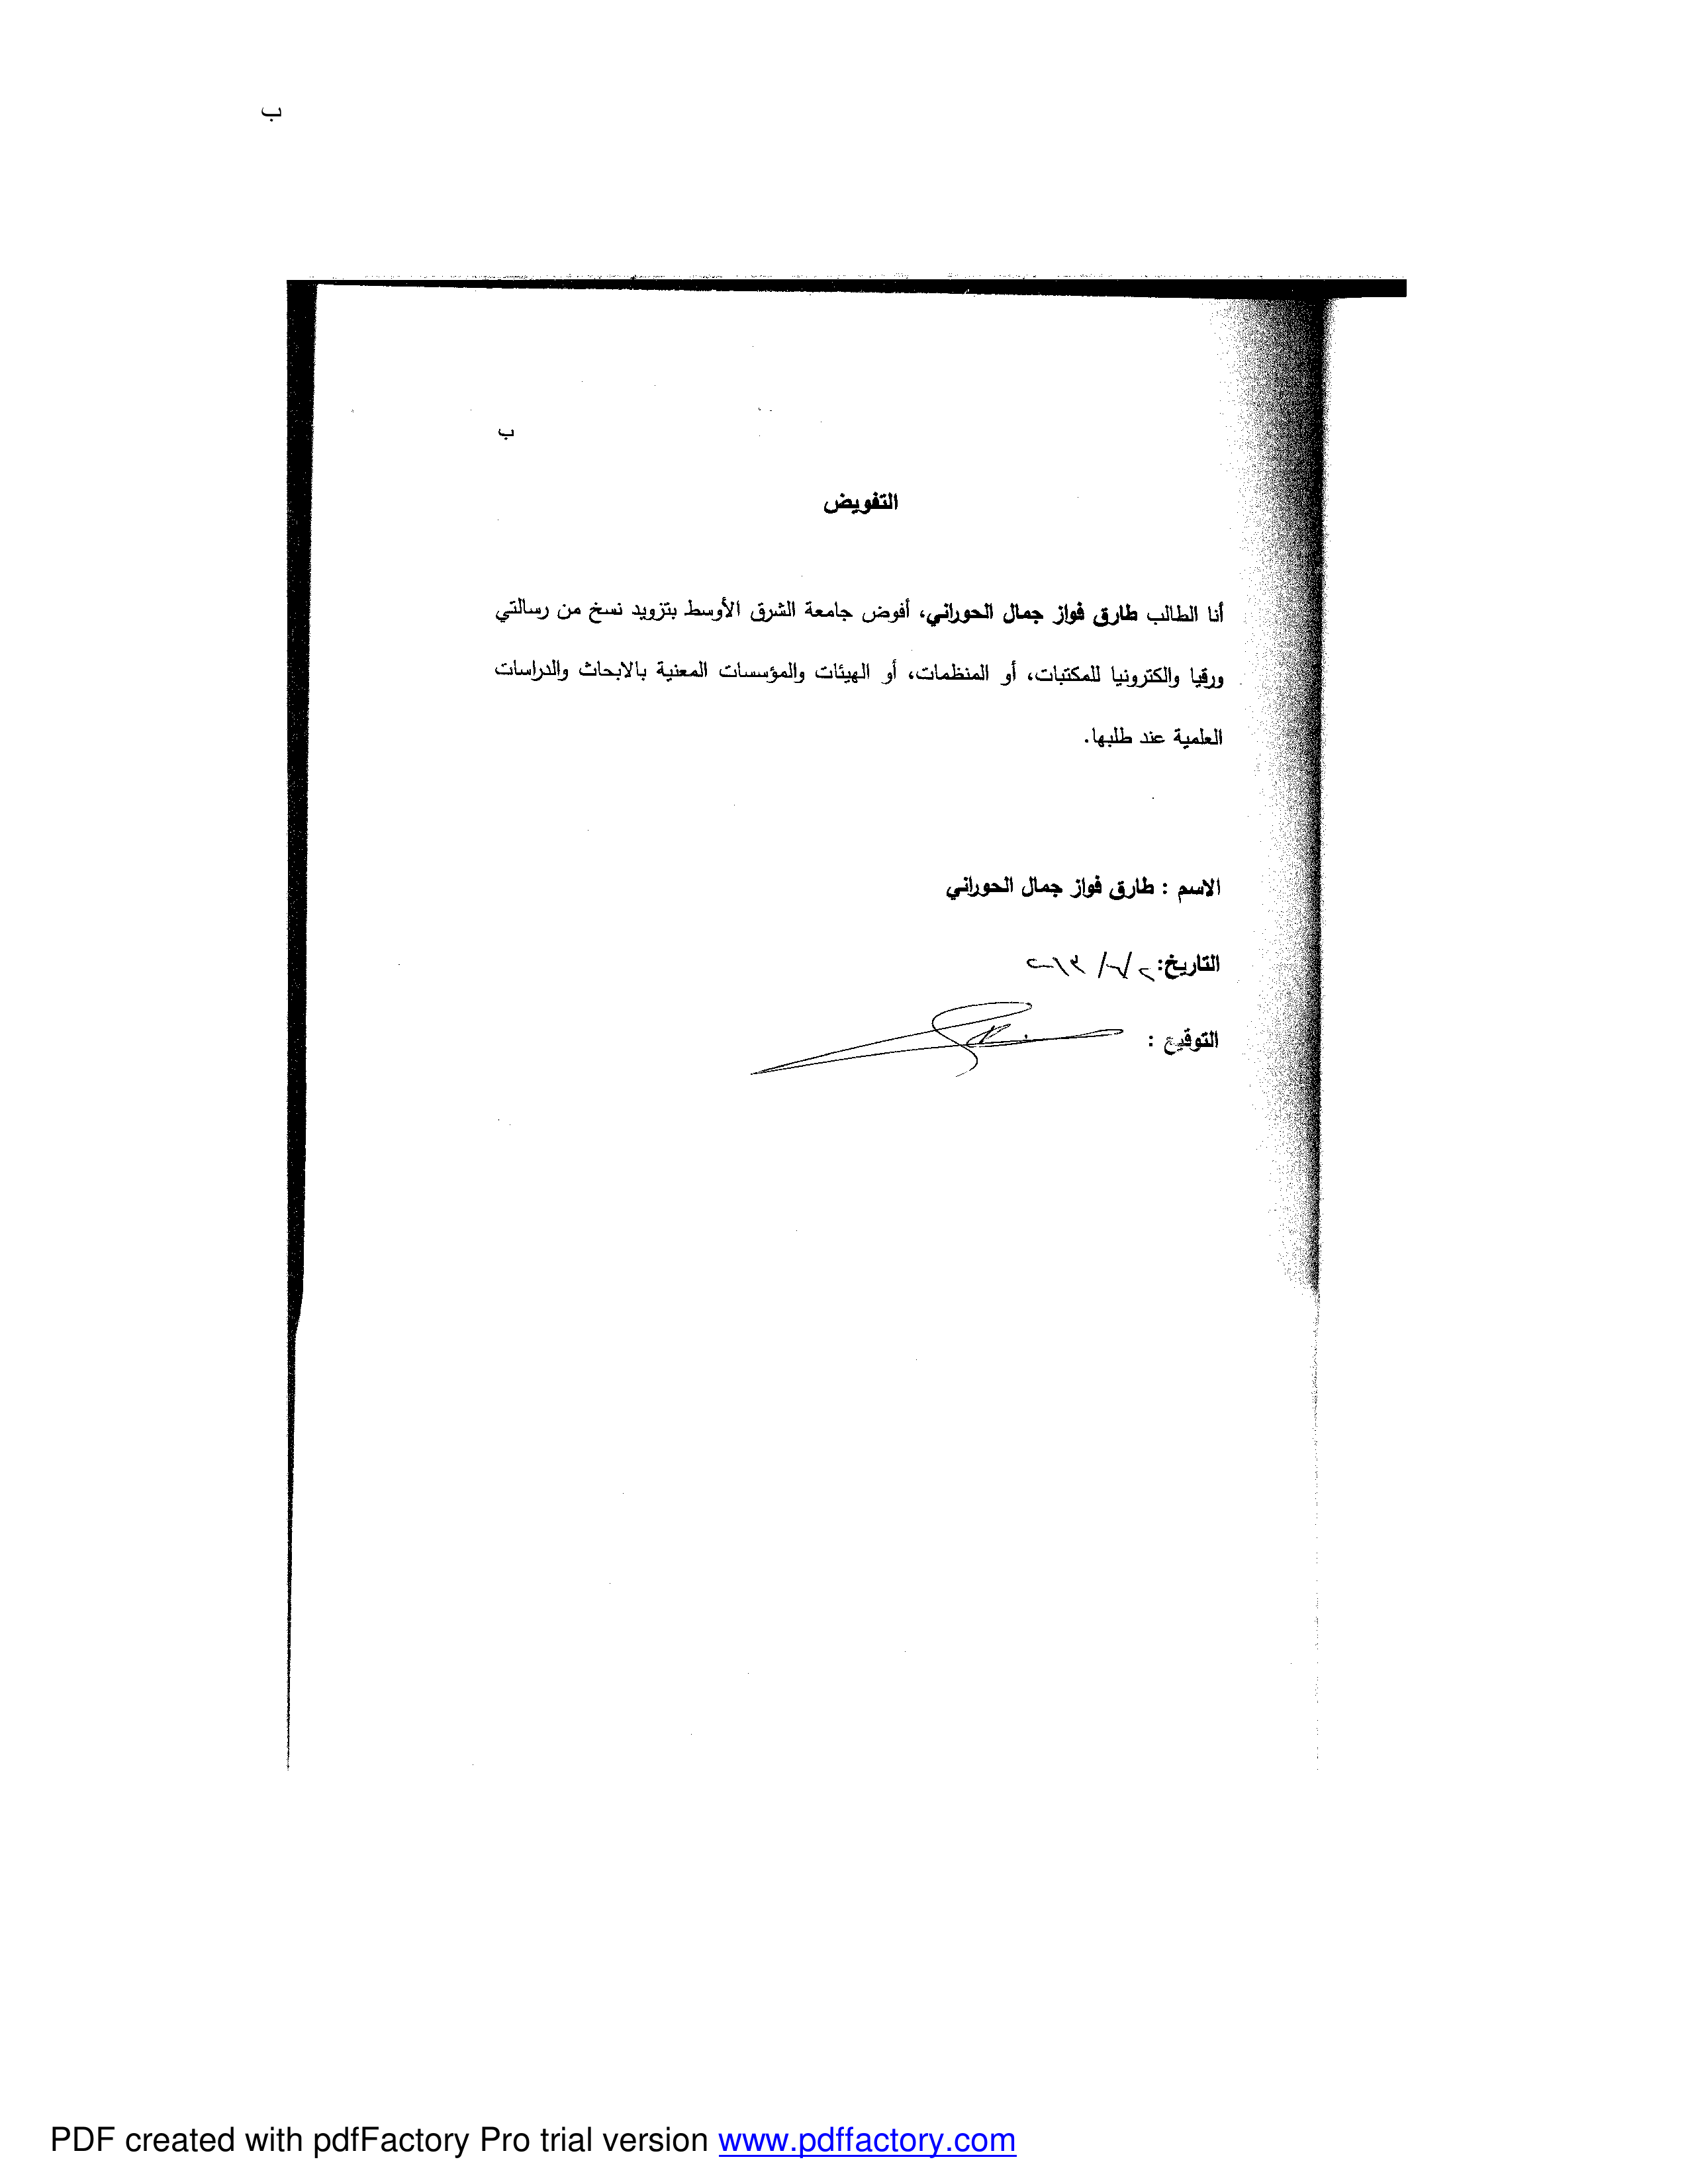 ب
ب
التفويض
أنا الطالب طارق فواز جمال الحوراني، أفوض جامعة الشرق الأوسط بتزويد نسخ من رسالتي
ورقيا والكترونيا للمكتبات، أو المنظمات، أو الهيئات والمؤسسات المعنية بالابحاث والدراسات
العلمية عند طلبها.
الاسم : طارق فواز جمال الحوراني
التاريخ:
التوقيع :
PDF created with pdfFactory Pro trial version www.pdffactory.com